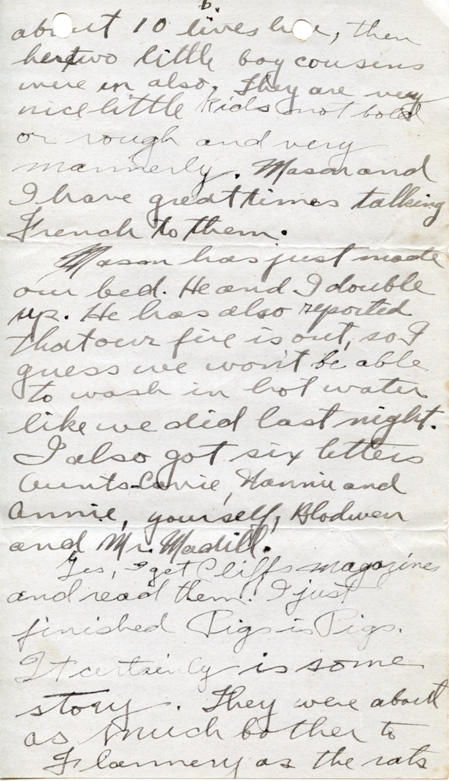 6.
about 10 lives here, then
her two little boy cousins
were in also. They are very
nice little kids not bold
or rough and very
mannerly. Mason and
I have great times talking
French to them.
Mason has just made
our bed. He and I double
up. He has also reported
that our fire is out, so I
guess we won't be able
to wash in hot water
like we did last night.
I also got six letters
Aunts Carrie, Nannie and
Annie, yourself, Blodwen
and Mr. Madill.
Yes, I get Cliffs magazines
and read them. I just
finished Pigs is Pigs.
It certainly is some
story. They were about
as much bother to
Flannery as the rats